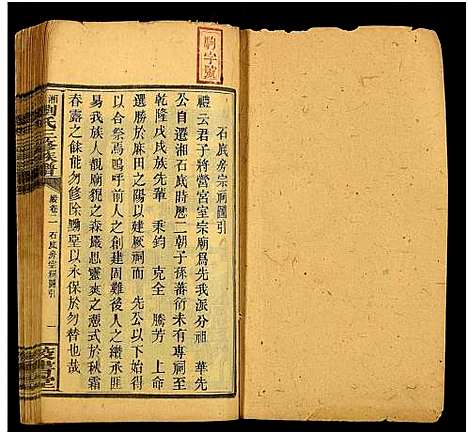 駒字號
石底房宗祠圖引
禮云君子將營宮室宗廟為先我派分祖　華先
公自遷湘石底時歷二朝子孫蕃衍未有專祠至
乾隆戊戌族先輩　秉鈞　克全　騰芳　上命
選勝於麻田之陽以建厥祠而　先公以下始得
以合祭焉嗚呼前人之創建固難後人之繼承匪
易我族人入觀廟貌之森嚴思靈爽之憑式於秋霜
春露之餘能勿修除黝堊以永保於勿替也哉
湘劉氏三修族譜
卷二　石底房宗祠圖引　一